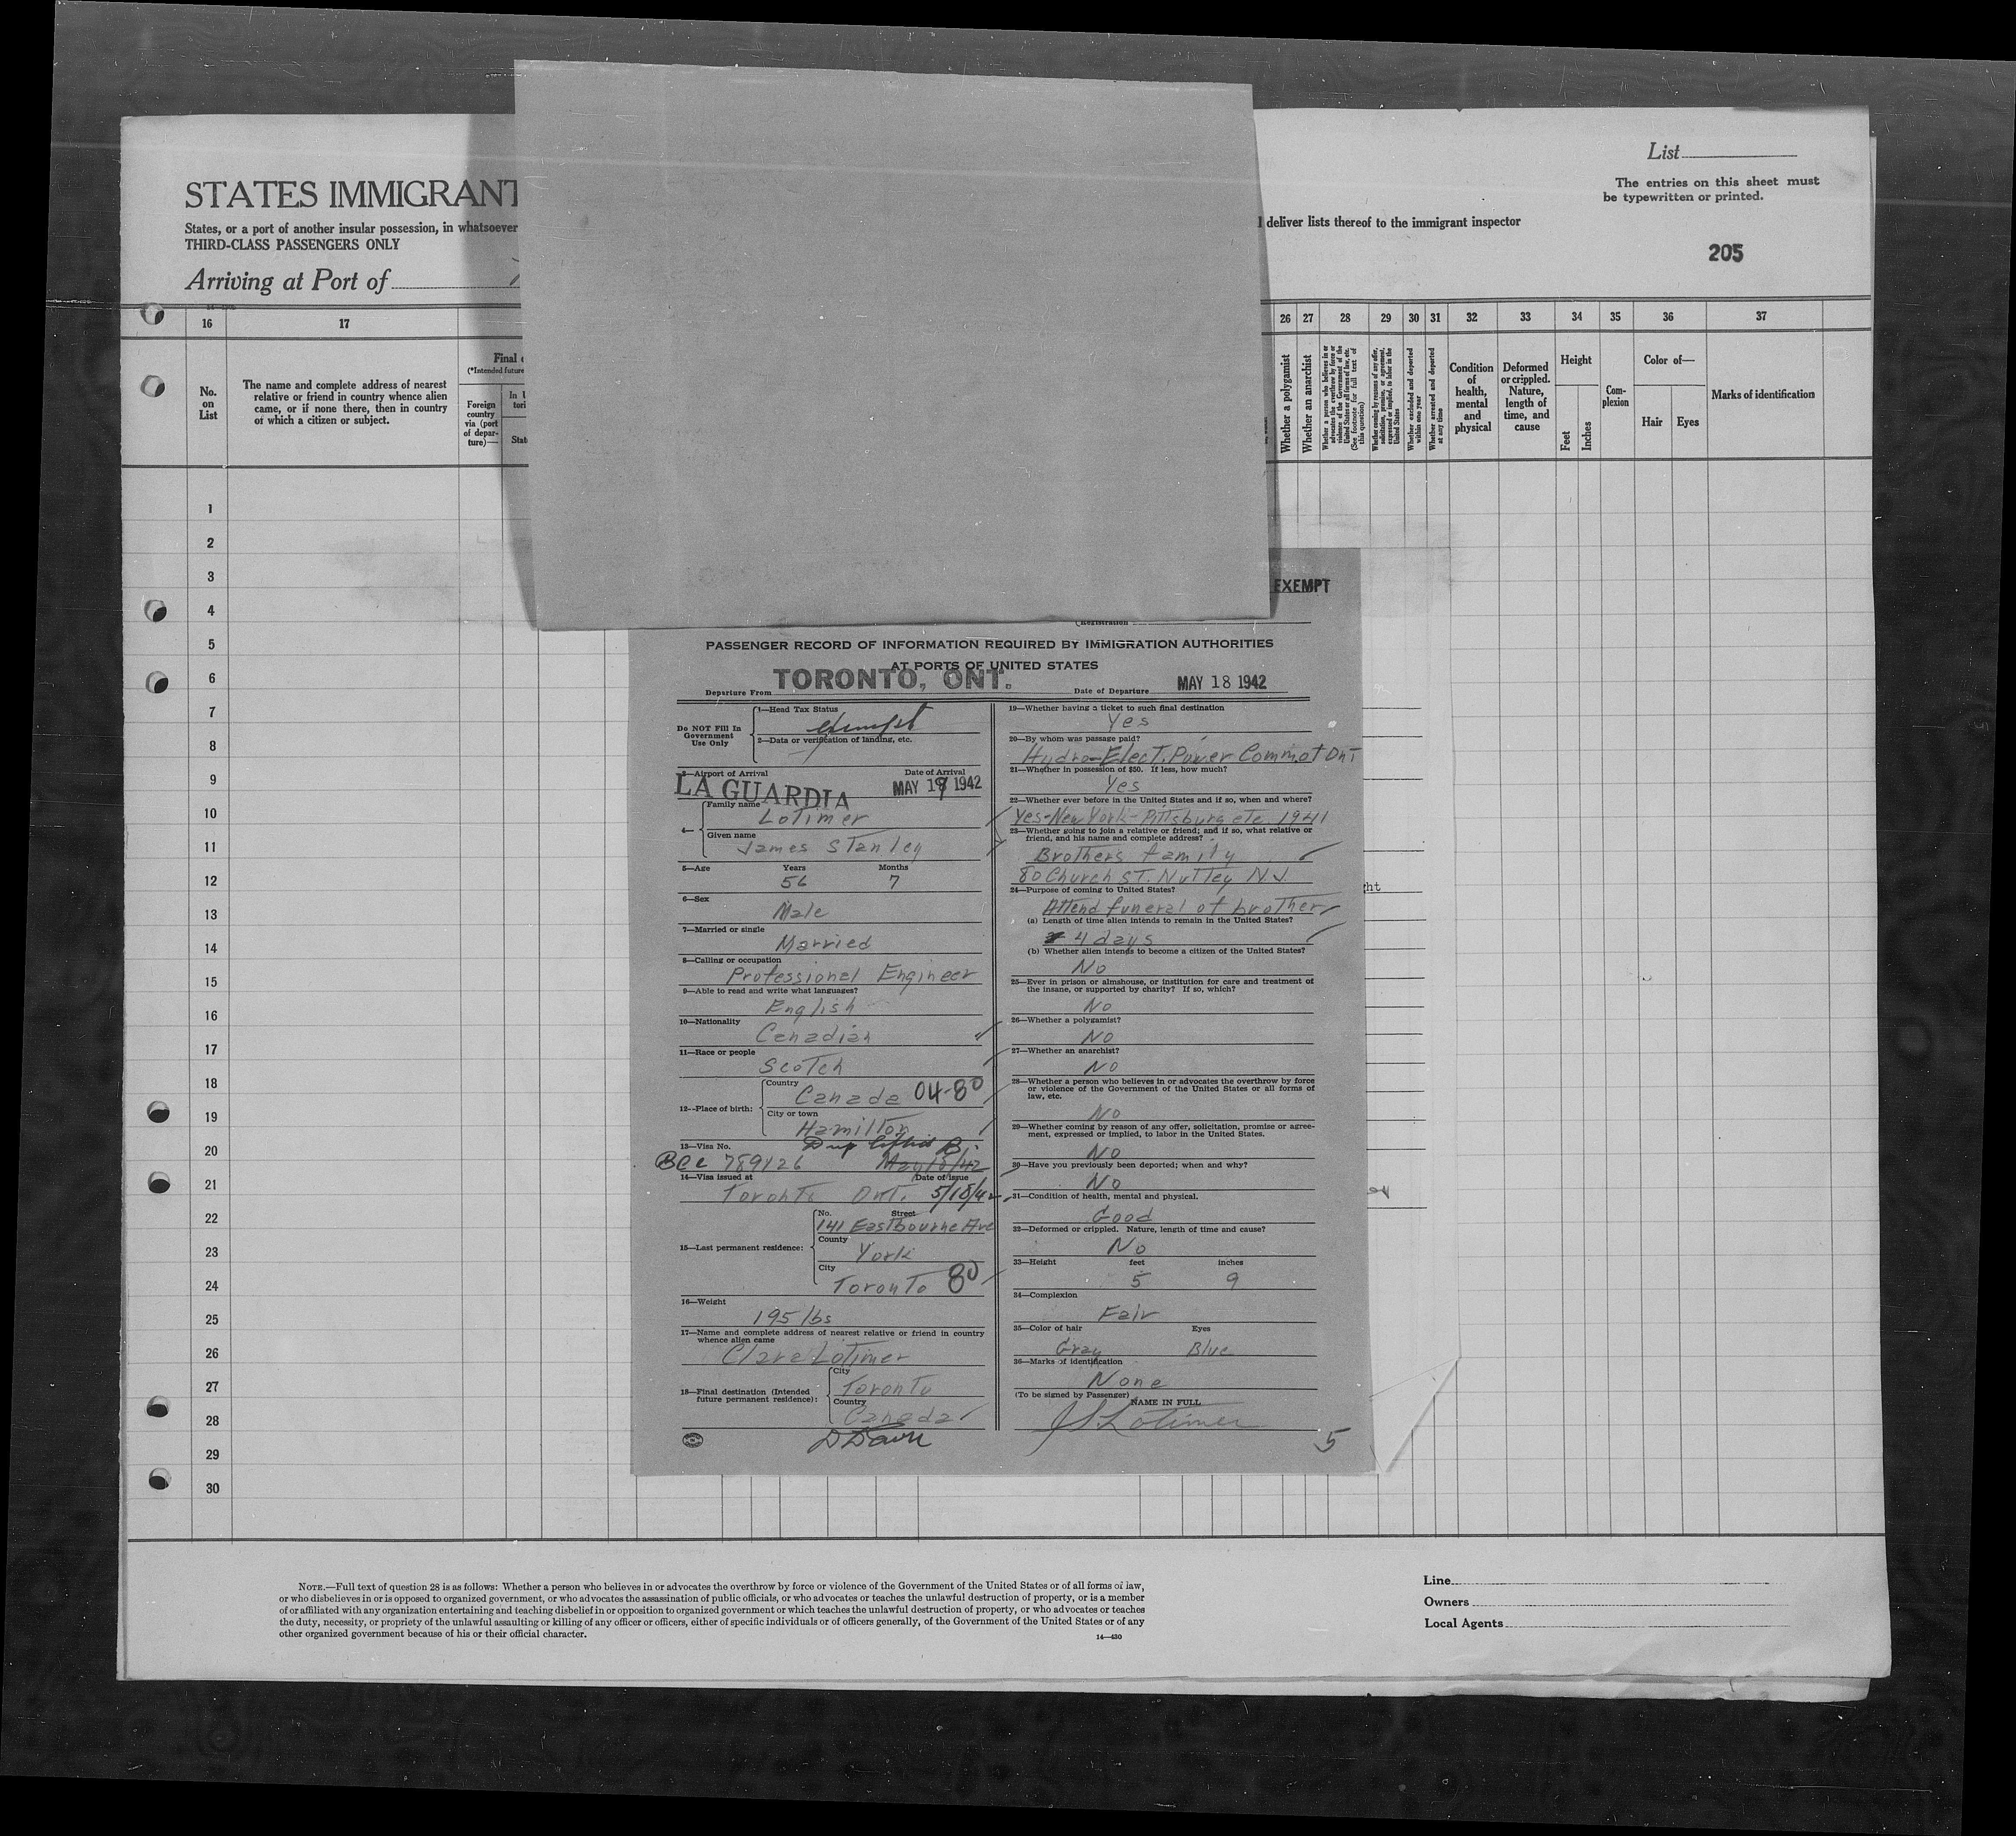 List
The entries on this sheet must
be typewritten or printed.
STATES IMMIGRANT
States, or a port of another insular possession, in whatsoever
deliver lists thereof to the immigrant inspector
THIRD-CLASS PASSENGERS ONLY
205
Arriving at Port of
16 17 26 27 28 29 30 31 32 33 34 35 36 37
No. on List
The name and complete address of nearest
relative or friend in country whence alien
came, or if none there, then in country
of which a citizen or subject.
Final
(*Intended future
Foreign
country
via (port
of depar-
ture)—
Whether a polygamist
Whether an anarchist
Whether a person who believes in or advocates the overthrow by force or violence of the Government of the United States or all forms of law, etc. (See footnote for full text of this question)
Whether coming by reason of any offer, solicitation, promise, or agreement, expressed or implied, to labor in the United States
Whether excluded and deported within one year
Whether arrested and deported at any time
Condition of health, mental and physical
Deformed or crippled. Nature, length of time, and cause
Height
Feet
Inches
Com-
plexion
Color of—
Hair
Eyes
Marks of identification
1
2
3
4
5
6
7
8
9
10
11
12
13
14
15
16
17
18
19
20
21
22
23
24
25
26
27
28
29
30
EXEMPT
(Registration
PASSENGER RECORD OF INFORMATION REQUIRED BY IMMIGRATION AUTHORITIES
AT PORTS OF UNITED STATES
Departure From TORONTO, ONT. Date of Departure MAY 18 1942
Do NOT Fill In
Government
Use Only
1—Head Tax Status
exempt
2—Data or verification of landing, etc.
3—Airport of Arrival Date of Arrival
LA GUARDIA MAY 19 1942
4—
Family name
Lotimer
Given name
James Stanley
5—Age Years Months
56 7
6—Sex
Male
7—Married or single
Married
8—Calling or occupation
Professional Engineer
9—Able to read and write what languages?
English
10—Nationality
Canadian
11—Race or people
Scotch
12—Place of birth:
Country
Canada 04-80
City or town
Hamilton
13—Visa No.
BCC 789126 May 18/42
14—Visa issued at Date of issue
Toronto Ont. 5/18/42
15—Last permanent residence:
No. Street
141 Eastbourne Ave
County
York
City
Toronto 80
16—Weight
195 lbs
17—Name and complete address of nearest relative or friend in country
whence alien came
Clara Lotimer
18—Final destination (Intended
future permanent residence):
City
Toronto
Country
Canada
19—Whether having a ticket to such final destination
Yes
20—By whom was passage paid?
Hydro-Elect. Power Comm of Ont
21—Whether in possession of $50. If less, how much?
Yes
22—Whether ever before in the United States and if so, when and where?
Yes-New York-Pittsburg etc. 1941
23—Whether going to join a relative or friend; and if so, what relative or
friend, and his name and complete address?
Brothers family
80 Church ST. Nutley N.J.
24—Purpose of coming to United States?
Attend funeral of brother
(a) Length of time alien intends to remain in the United States?
4 days
(b) Whether alien intends to become a citizen of the United States?
No
25—Ever in prison or almshouse, or institution for care and treatment of
the insane, or supported by charity? If so, which?
No
26—Whether a polygamist?
No
27—Whether an anarchist?
No
28—Whether a person who believes in or advocates the overthrow by force
or violence of the Government of the United States or all forms of
law, etc.
No
29—Whether coming by reason of any offer, solicitation, promise or agree-
ment, expressed or implied, to labor in the United States.
No
30—Have you previously been deported; when and why?
No
31—Condition of health, mental and physical.
Good
32—Deformed or crippled. Nature, length of time and cause?
No
33—Height feet inches
5 9
34—Complexion
Fair
35—Color of hair Eyes
Gray Blue
36—Marks of identification
None
(To be signed by Passenger) NAME IN FULL
J S Lotimer
5
ght
NOTE.—Full text of question 28 is as follows: Whether a person who believes in or advocates the overthrow by force or violence of the Government of the United States or of all forms of law,
or who disbelieves in or is opposed to organized government, or who advocates the assassination of public officials, or who advocates or teaches the unlawful destruction of property, or is a member
of or affiliated with any organization entertaining and teaching disbelief in or opposition to organized government or which teaches the unlawful destruction of property, or who advocates or teaches
the duty, necessity, or propriety of the unlawful assaulting or killing of any officer or officers, either of specific individuals or of officers generally, of the Government of the United States or of any
other organized government because of his or their official character.
14—430
Line
Owners
Local Agents